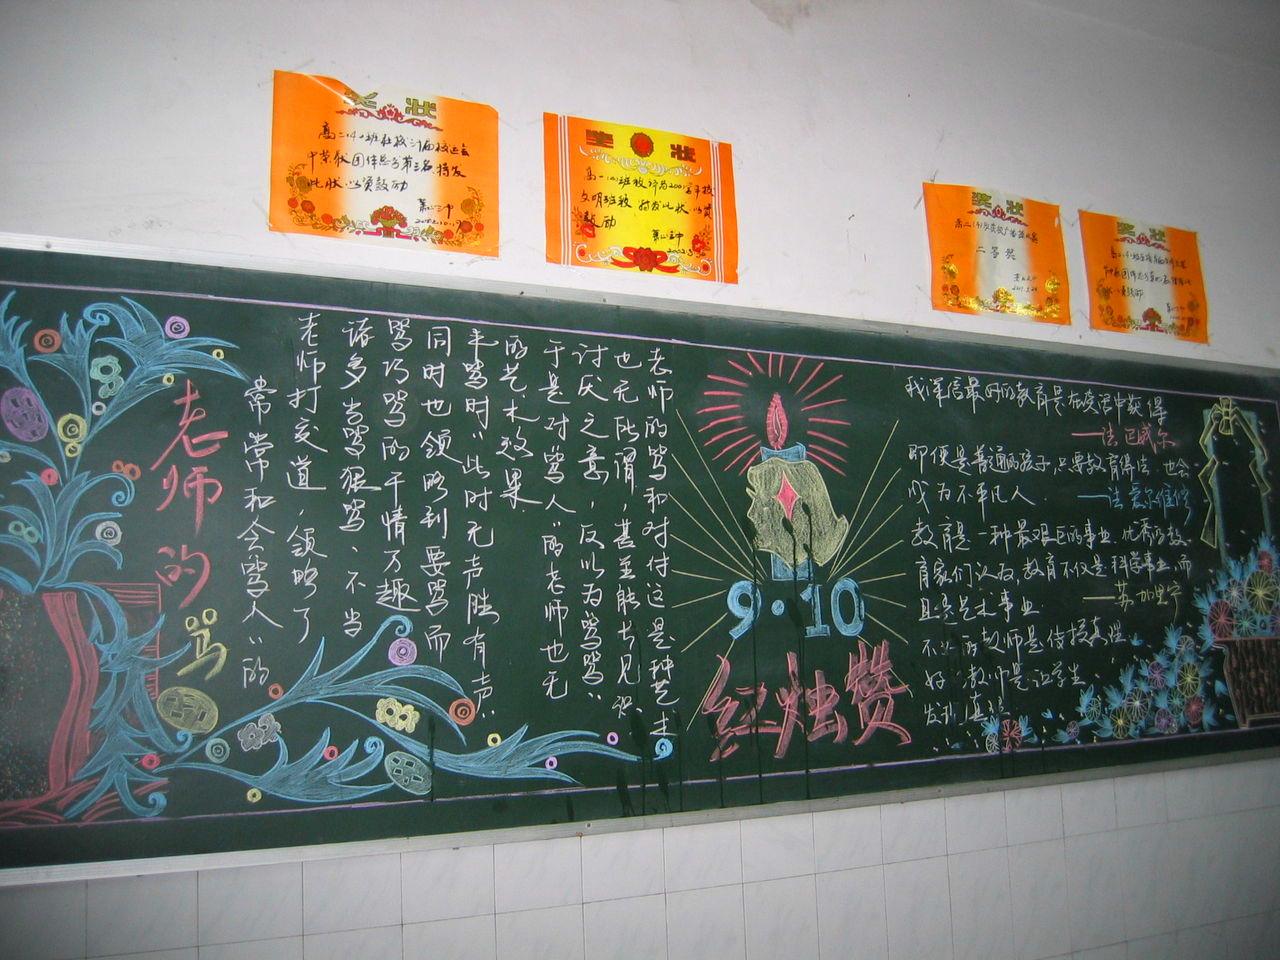 奖状
高二(4)班在校 届校运会
中荣获团体总分第三名,特发
此状以资鼓励
萧山三中
奖状
高一(4)班被评为2001学年校
文明班级 特发此状 以资
鼓励
萧山三中
奖状
二等奖
奖状
老师的骂
常常和会骂人"的
老师打交道,领略了
诸多当骂狠骂、不当
骂巧骂的千情万趣
同时也领略到要骂而
未骂时"此时无声胜有声"
的艺术效果
于是对骂人"的老师也无
讨厌之意,反以为骂骂"
也无所谓,甚至能长见识
老师的骂和对付这是种艺术
9·10
红烛赞
我深信最好的教育是在交谈中获得
——法 巴威尔
即便是普通的孩子,只要教育得法,也会
成为不平凡人. ——法 爱尔维修
教育是一种最艰巨的事业.优秀的教
育家们认为,教育不仅是科学事业,而
且是艺术事业 ——苏·加里宁
不好的教师是传授真理
好的教师是让学生
发现真理